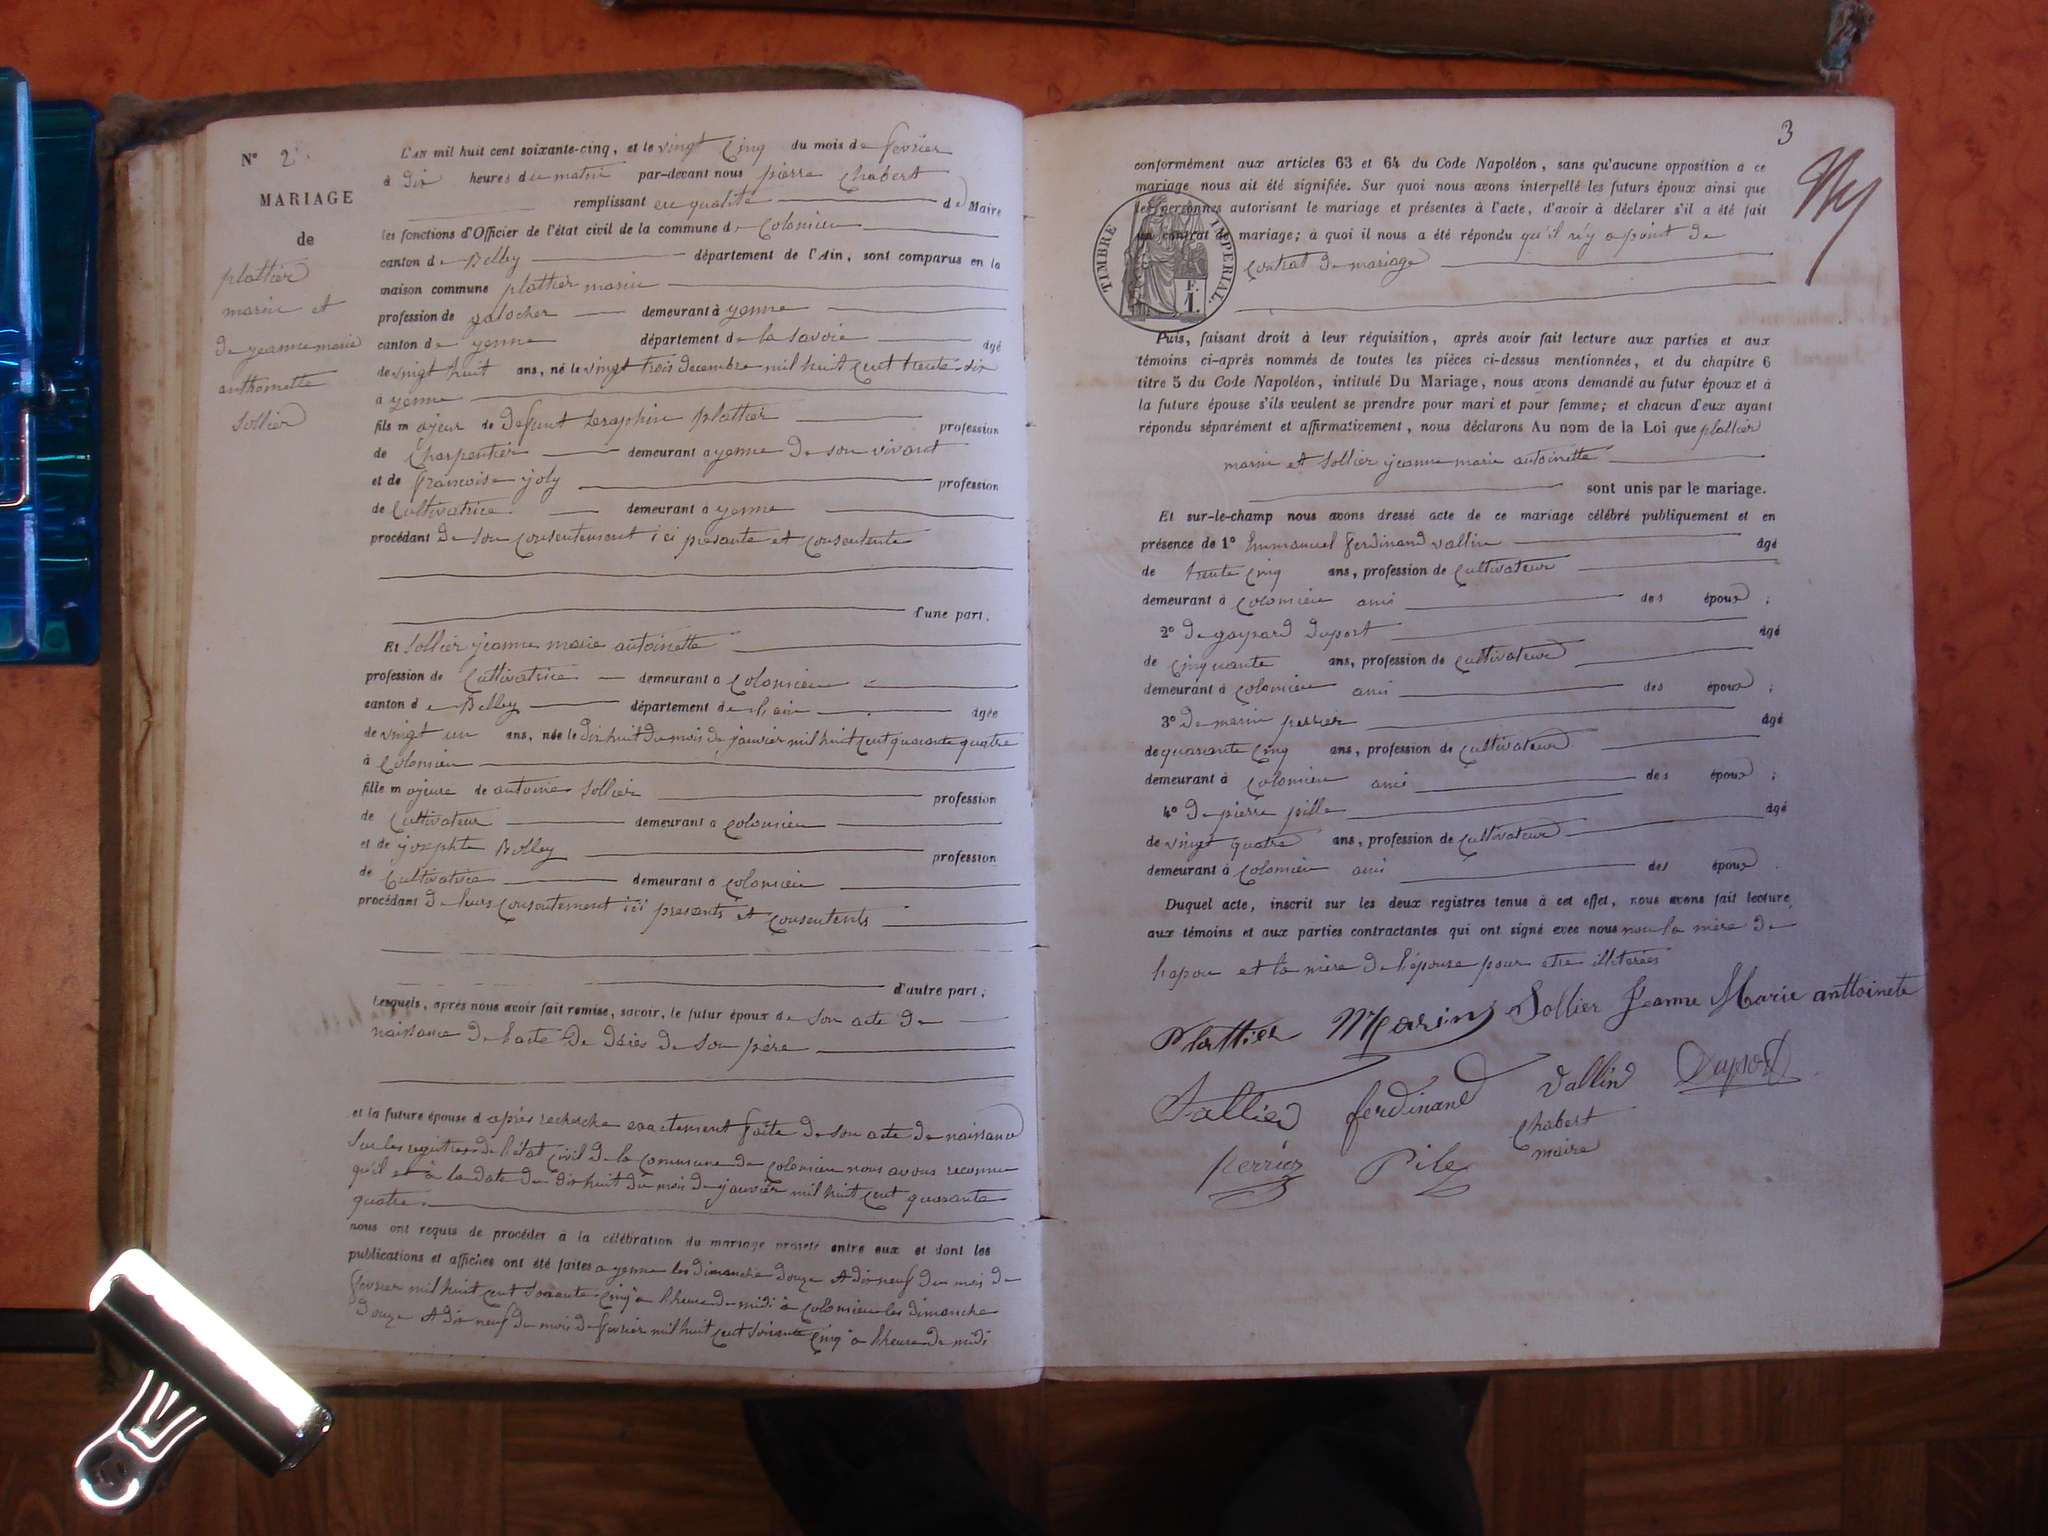 N° 2.
MARIAGE
de
plattier
marin et
de jeanne marie
anthoinette
Sollier
L'AN mil huit cent soixante-cinq, et le vingt cinq du mois de fevrier
à Dix heures du matin par-devant nous pierre Chabert
remplissant en qualité de Maire
les fonctions d'Officier de l'état civil de la commune de Colomieu
canton de Belley département de l'Ain, sont comparus en la
maison commune plattier marin
profession de galocher demeurant à yenne
canton de yenne département de la Savoie âgé
de vingt huit ans, né le vingt trois decembre mil huit cent trente six
à yenne
fils majeur de Defunt Seraphin plattier profession
de Charpentier demeurant a yenne De son vivant
et de francoise joly profession
de Cultivatrice demeurant à yenne
procédant De son consentement ici presante et consentente
d'une part.
Et Sollier jeanne marie antoinette
profession de Cultivatrice demeurant a Colomieu
canton de Belley département de l'ain âgée
de vingt un ans, née le dix huit du mois de janvier mil huit cent quarante quatre
à Colomieu
fille majeure de antoine Sollier profession
de Cultivateur demeurant a Colomieu
et de josephte Bolley profession
de Cultivatrice demeurant à Colomieu
procédant De leurs consentement ici presents et consentents
d'autre part;
Lesquels, après nous avoir fait remise, savoir, le futur époux de Son acte De
naissance De l'acte De Déces De Son père
et la future épouse d après recherche exactement faite de son acte de naissance
sur les registres de l'état civil de la commune de Colomieu nous avons reconnu
qu'il et à la date du dix huit du mois de janvier mil huit cent quarante
quatre.
nous ont requis de procéder à la célébration du mariage projeté entre eux et dont les
publications et affiches ont été faites a yenne les dimanche douze et dix neuf du mois de
fevrier mil huit cent soixante cinq a l'heure de midi à colomieu les dimanche
douze et dix neuf du mois de fevrier mil huit cent soixante cinq a l'heure de midi
3
conformément aux articles 63 et 64 du Code Napoléon, sans qu'aucune opposition à ce
mariage nous ait été signifiée. Sur quoi nous avons interpellé les futurs époux ainsi que
les personnes autorisant le mariage et présentes à l'acte, d'avoir à déclarer s'il a été fait
un contrat de mariage; à quoi il nous a été répondu qu'il n'y a point de
contrat de mariage
TIMBRE IMPÉRIAL.
1 F.
Puis, faisant droit à leur réquisition, après avoir fait lecture aux parties et aux
témoins ci-après nommés de toutes les pièces ci-dessus mentionnées, et du chapitre 6
titre 5 du Code Napoléon, intitulé Du Mariage, nous avons demandé au futur époux et à
la future épouse s'ils veulent se prendre pour mari et pour femme; et chacun d'eux ayant
répondu séparément et affirmativement, nous déclarons Au nom de la Loi que plattier
marin et Sollier jeanne marie antoinette
sont unis par le mariage.
Et sur-le-champ nous avons dressé acte de ce mariage célébré publiquement et en
présence de 1° Emmanuel ferdinand vallin âgé
de trente cinq ans, profession de Cultivateur
demeurant à Colomieu ami des époux ;
2° De gaspard Duport âgé
de Cinquante ans, profession de Cultivateur
demeurant à Colomieu ami des époux ;
3° De marin perrier âgé
de quarante cinq ans, profession de Cultivateur
demeurant à Colomieu ami des époux ;
4° De pierre pille âgé
de vingt quatre ans, profession de Cultivateur
demeurant à Colomieu ami des époux .
Duquel acte, inscrit sur les deux registres tenus à cet effet, nous avons fait lecture
aux témoins et aux parties contractantes qui ont signé avec nous non la mère de
l'apou et la mère de l'épouse pour etre illeterées
Plattier Marin Sollier Jeanne Marie anttoinete
Sallier ferdinand Vallin Duport
Chabert
maire
Perrier Pile